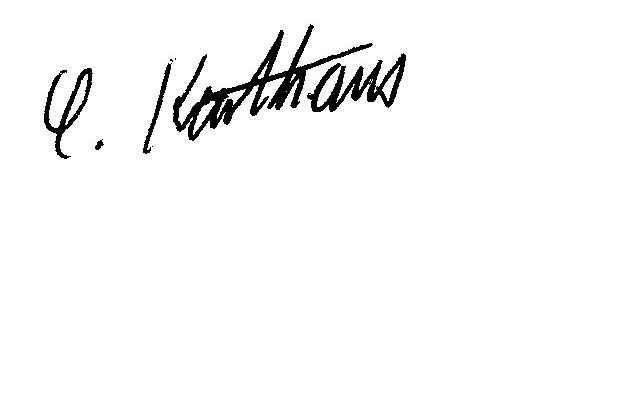 C. Karthaus